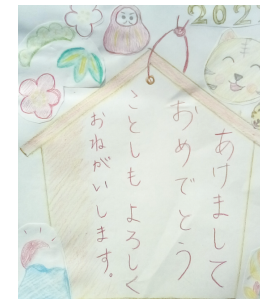 202
あけまして
おめでとう
ことしもよろしく
おねがいします。